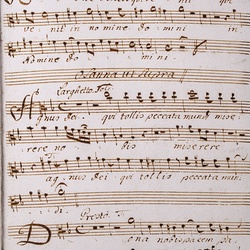 ve nit in no mine do mini in
No mine do mini
Osanna ut supra
Larghetto
Agnus dei qui tollis peccata mundi mise
rere no bis miserere
agnus dei qui tollis peccata mun
di
Presto
Dona nobis pacem